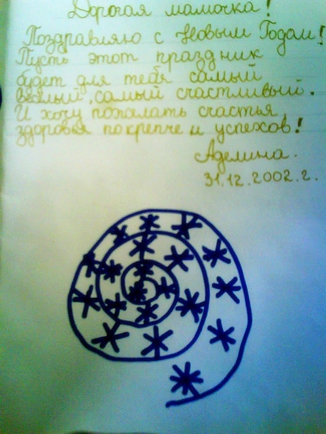 Дорогая мамочка!
Поздравляю с Новым Годом!
Пусть этот праздник
будет для тебя самый
весёлый, самый счастливый.
И хочу пожелать счастья,
здоровья покрепче и успехов!
Аделина.
31.12.2002.г.